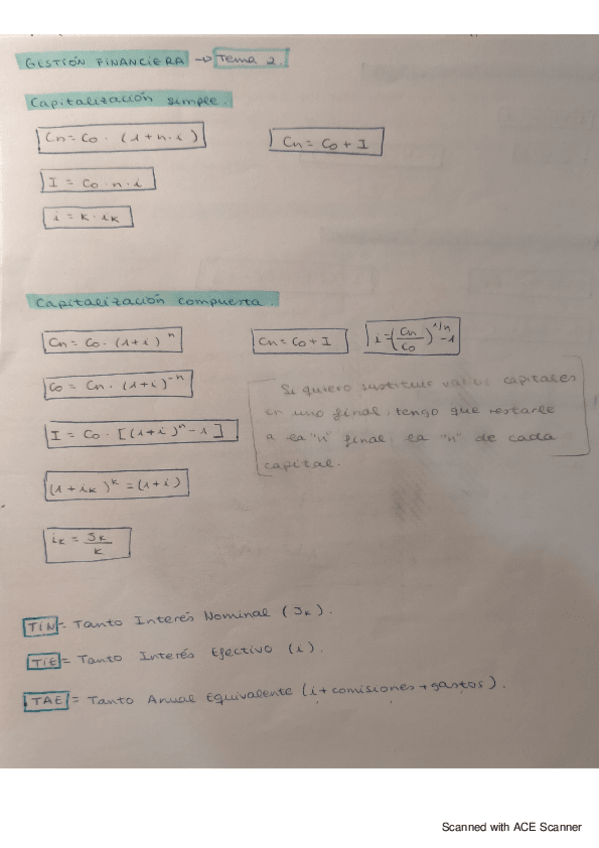 GESTIÓN FINANCIERA → Tema 2.
Capitalización simple.
Cn = Co · (1+n·i)
Cn = Co + I
I = Co · n · i
i = k · ik
Capitalización compuesta.
Cn = Co · (1+i)^n
Cn = Co + I
i = (Cn/Co)^1/n - 1
Co = Cn · (1+i)^-n
Si quiero sustituir varios capitales
en uno final, tengo que restarle
a la "n" final, la "n" de cada
capital.
I = Co · [(1+i)^n - 1]
(1+ik)^k = (1+i)
ik = Jk/k
TIN = Tanto Interés Nominal (Jk).
TIE = Tanto Interés Efectivo (i).
TAE = Tanto Anual Equivalente (i+comisiones+gastos).
Scanned with ACE Scanner